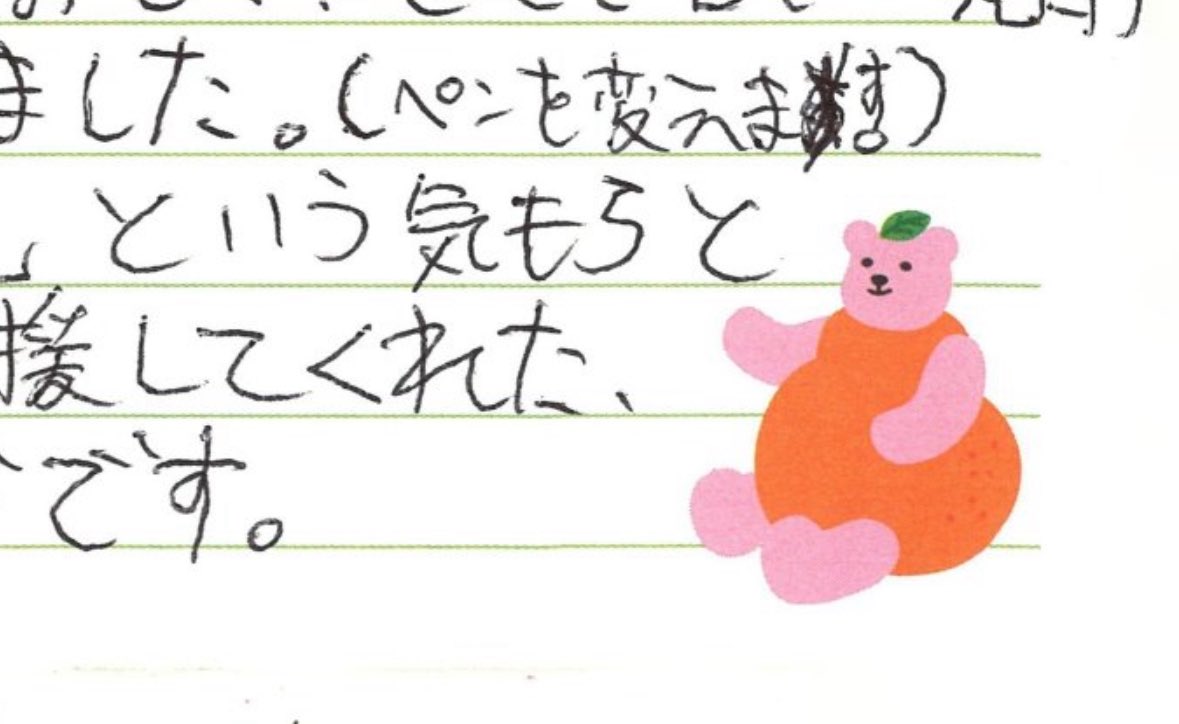 ました。(ペンを変えます)
」という気もちと
援してくれた、
です。